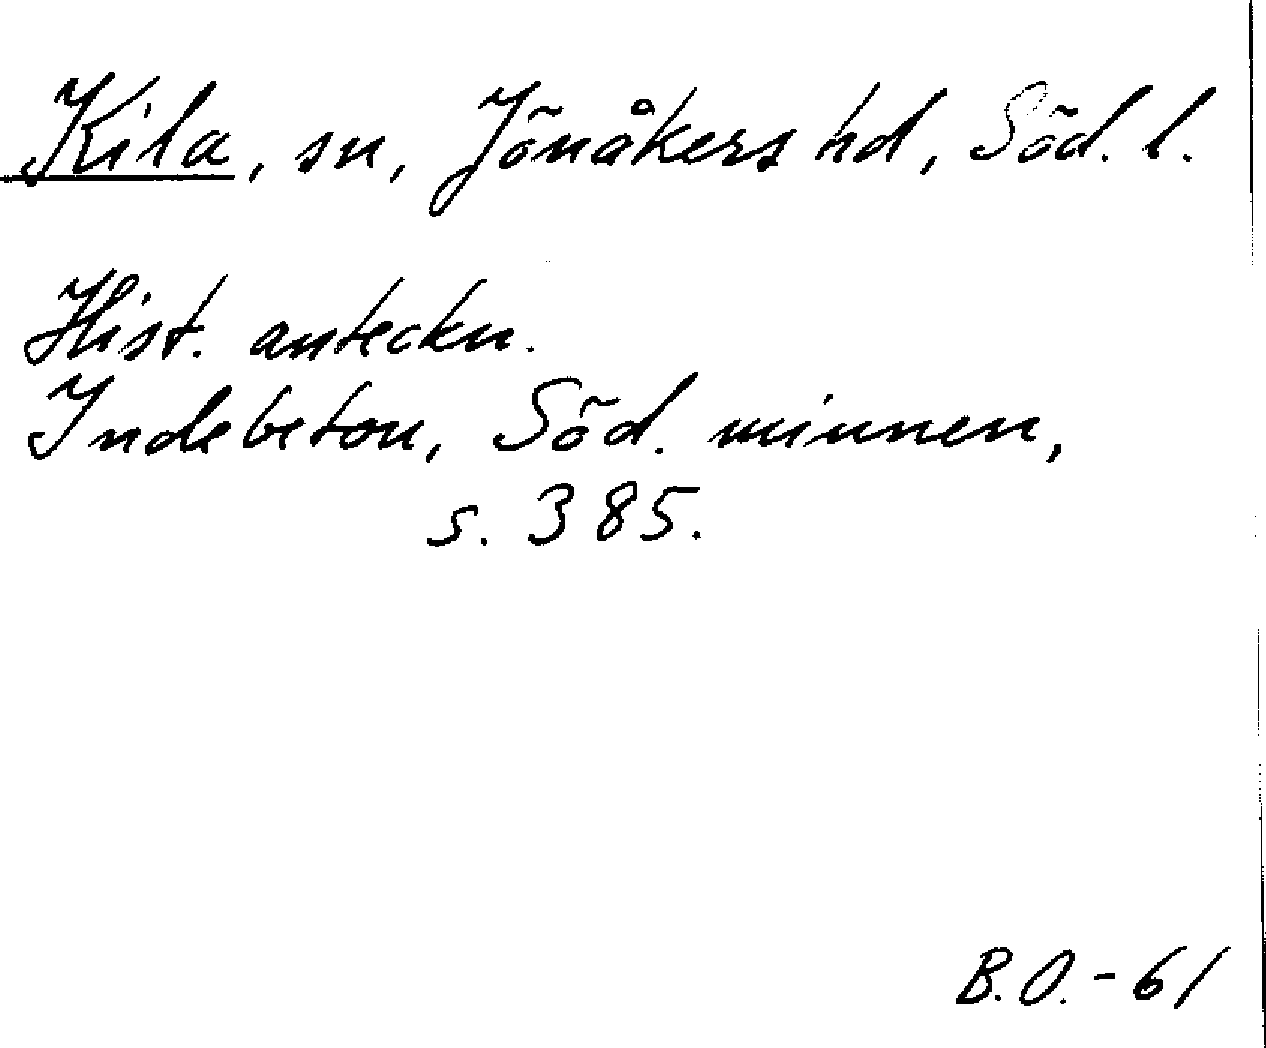 Kila, sn, Jönåkers hd, Söd. l.
Hist. anteckn.
Indebetou, Söd. minnen,
s. 385.
B.O.-61